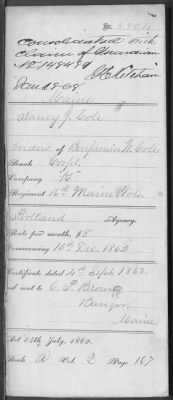 No.
Consolidated with
Claim of Guardian
No 145487
Maine
Nancy J. Cole
Widow of Benjamin W. Cole
Rank Corpl.
Company "K"
Regiment 16th Maine Vols.
Portland Agency.
Rate per month, $8
Commencing 18th Dec. 1862
Certificate dated 4th Sept. 1863.
and sent to C. P. Brown
Bangor
Maine
Act 14th July, 1862.
Book A Vol. 2 Page 167